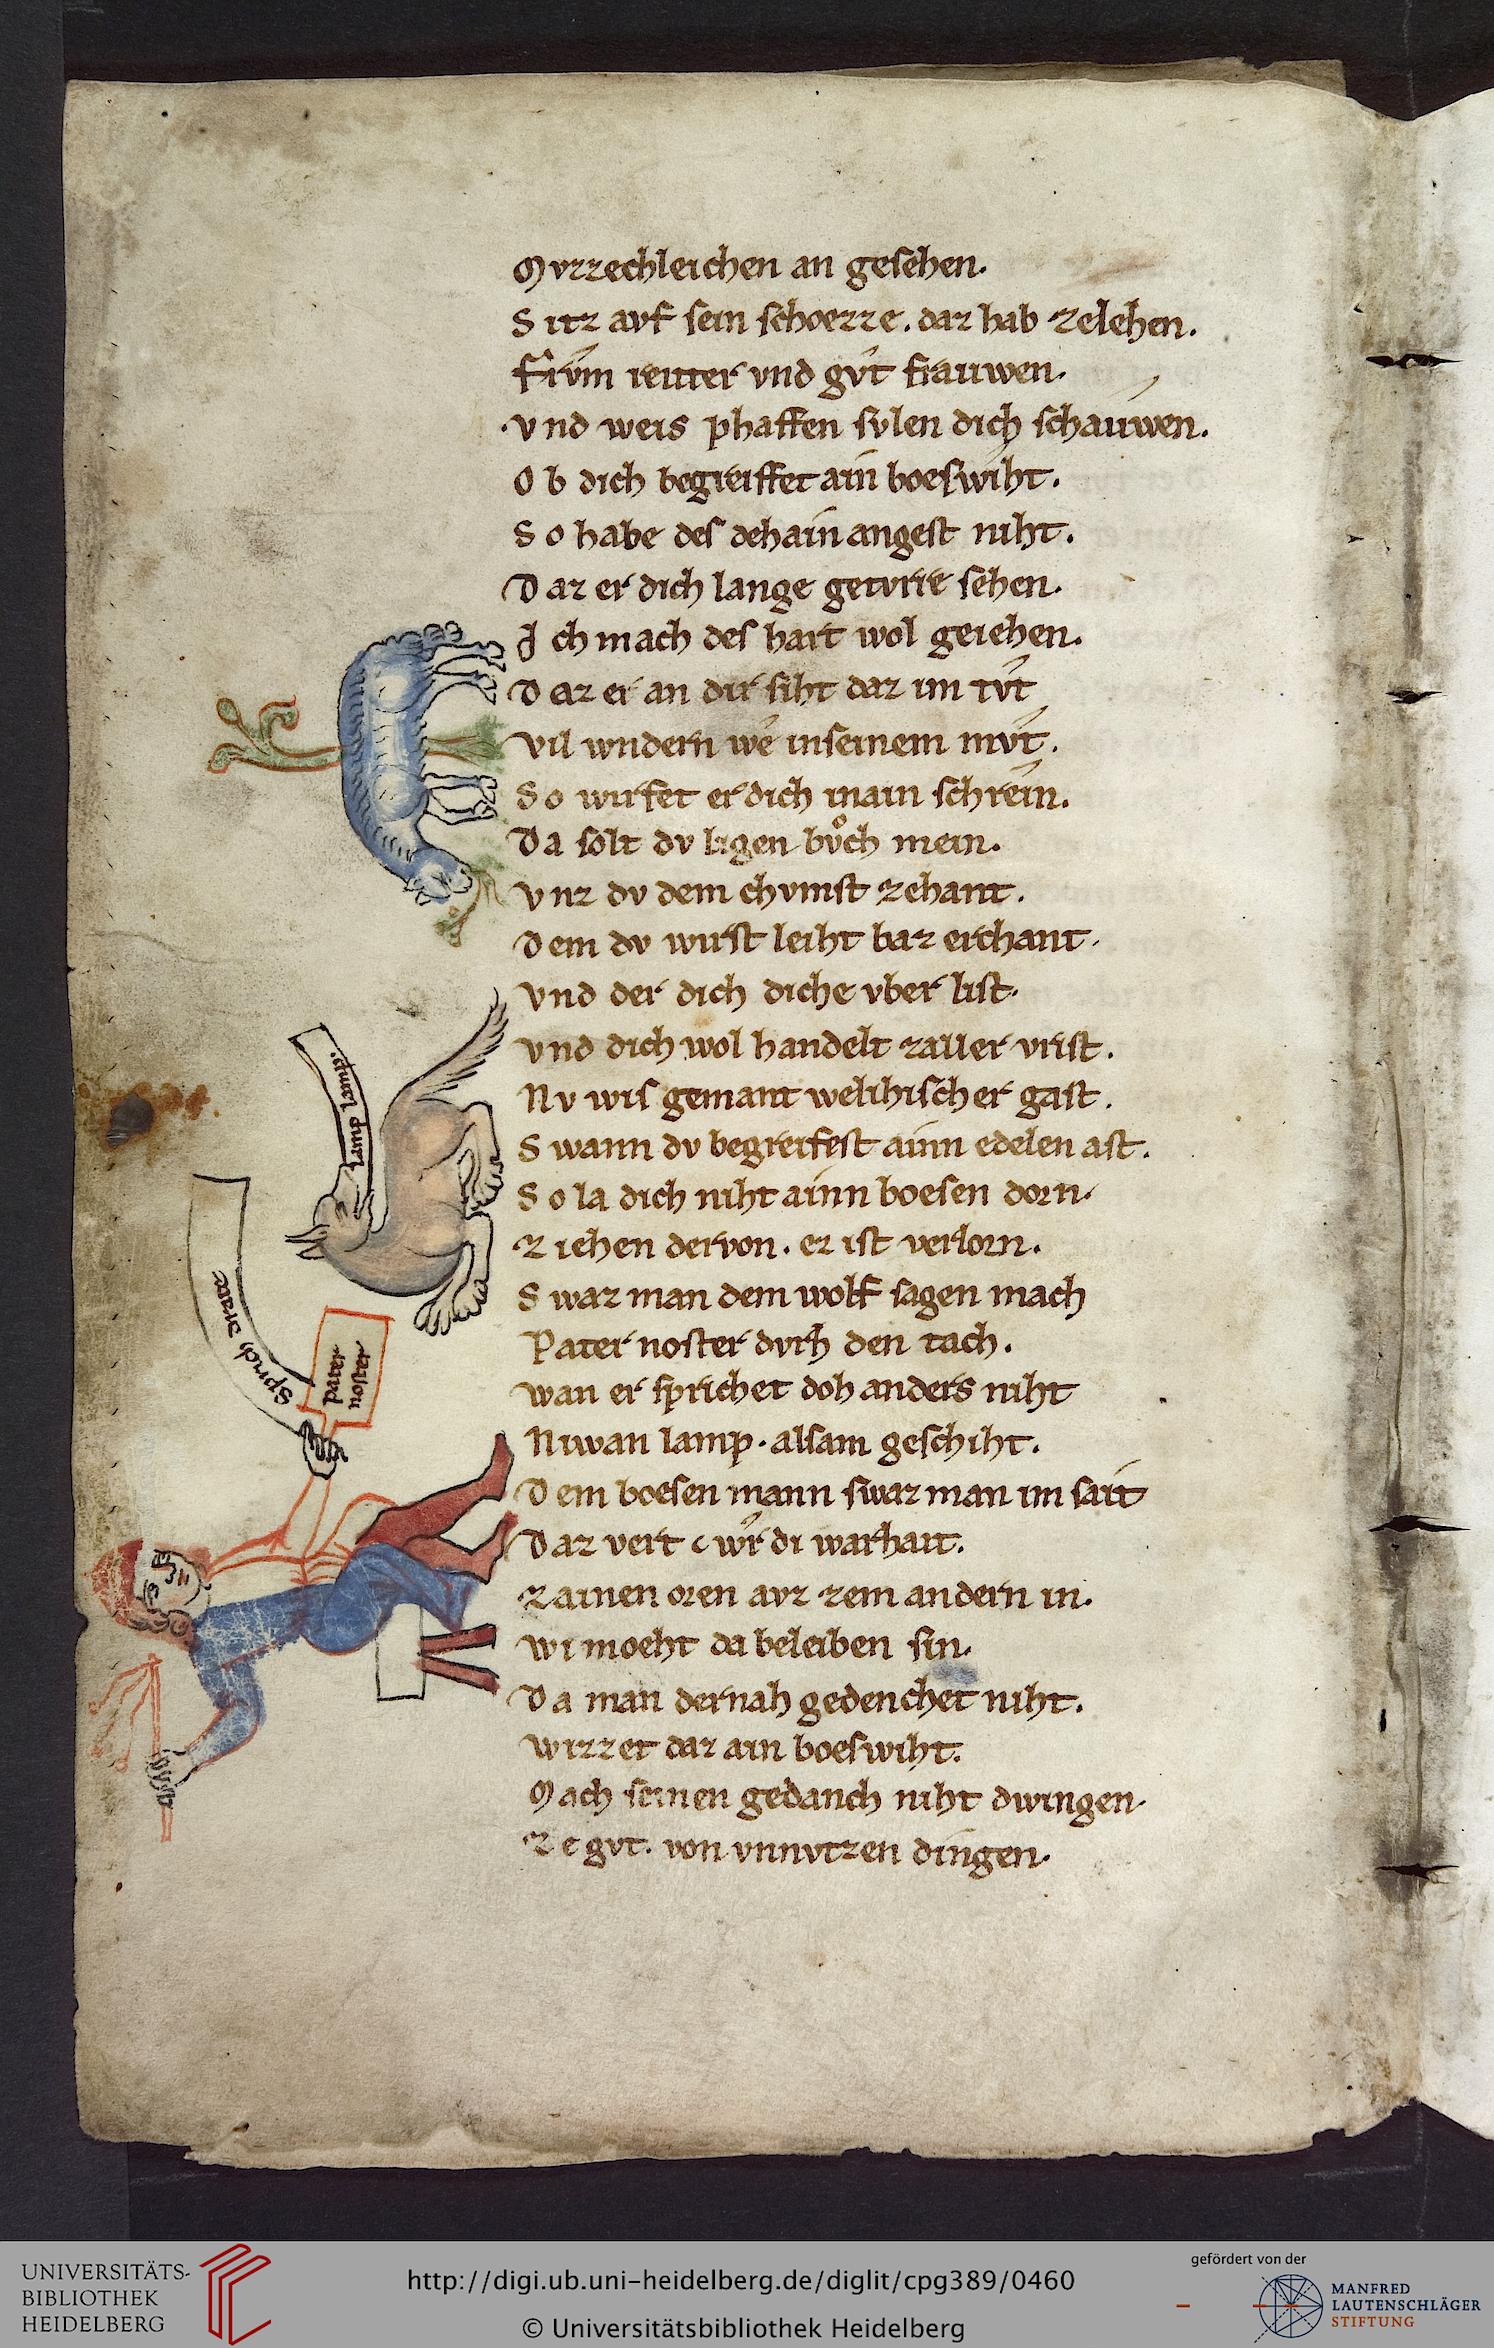 Mvzzechleichen an gesehen.
Sitz avf sein schoezze. daz hab zelehen.
Frvm reuter vnd gvt frauwen.
Vnd weis phaffen svlen dich schauwen.
Ob dich begreiffet ain boeswiht.
So habe des dehain angest niht.
Daz er dich lange getvrre sehen.
Ich mach des hart wol geiehen.
Daz er an dir siht daz im tvt
Vil wndern we inseinem mvt.
So wirfet er dich inain schrein.
Da solt dv ligen bvͦch mein.
Vnz dv dem chvmst zehant.
Dem dv wirst leiht baz erchant.
Vnd der dich diche vber list.
Vnd dich wol handelt zaller vrist.
Nv wis gemant welihischer gast.
Swann dv begreifest ainn edelen ast.
So la dich niht ainn boesen dorn.
Ziehen dervon. ez ist verlorn.
Swaz man dem wolf sagen mach
Pater noster dvrh den tach.
wan er sprichet doh anders niht
Niwan lamp. alsam geschiht.
Dem boesen mann swaz man im sait
Daz vert wr di warhait.
Zainen oren avz zem andern in.
Wi moeht da beleiben sin.
Da man dernah gedenchet niht.
Wizzet daz ain boeswiht.
Mach seinen gedanch niht dwingen.
Ze gvt. von vnnvtzen dingen.
lamp lamp.
Sprich drate
pater
noster
UNIVERSITÄTS-
BIBLIOTHEK
HEIDELBERG
http://digi.ub.uni-heidelberg.de/diglit/cpg389/0460
© Universitätsbibliothek Heidelberg
gefördert von der
MANFRED
LAUTENSCHLÄGER
STIFTUNG